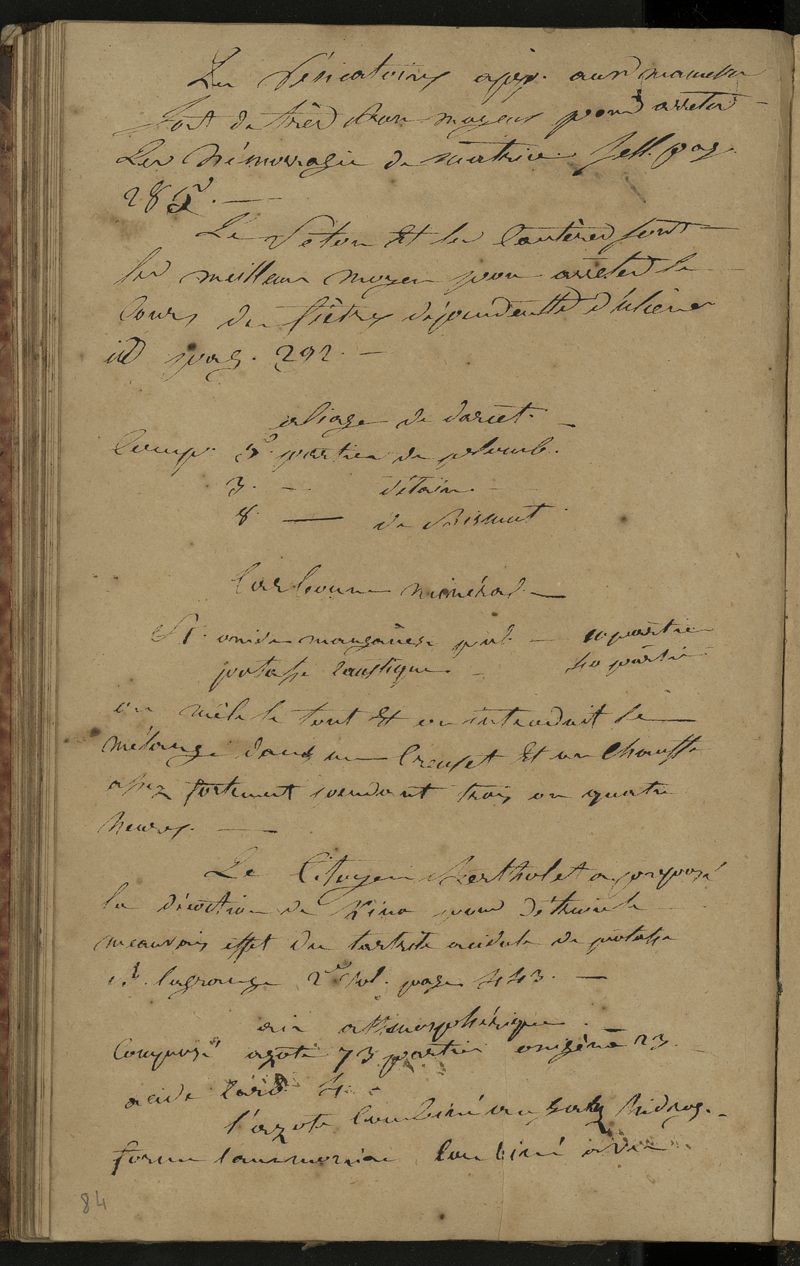 Les Vésicatoires app. aux mamelles
sont de très bon moyens pour arreter
les hémorragie de matrice sell. pag.
285. —
Le Séton Et les Cautères sont
les meilleur moyen pour arreter le
Cours des fièvres dépendentte d'ulcères
id pag. 292. —
aliage de darcet. —
Comp. 5 partie de plomb.
3. — d'étain. —
8 — de Bismut.
Carbonne minéral. —
oxide manganèse pul. — 10 partie
potasse Caustique — 40 partie
on mêle le tout Et on introduit le
mélange dans un Creuset Et on Chauffe
assez fortement pendant trois ou quatre
heures. —
Le Citoyen Bertholet a proposé
la décoction de Kina pour détruire le
meauvais effet du tartrite acidule de potasse
lagrange 2e vol. page 443. —
air atmosphérique.
Composé azote 73 partie oxigène 23.
acide Carb. 4. —
l'azote Combiné au gaz hidrog.
forme l'ammoniac Combiné avec
84